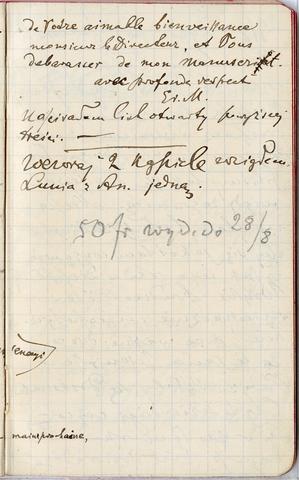 de Votre aimable bienveillance
monsieur le Directeur, et Vous
debarasser de mon manuscript.
avec profonde respect
E. M.
list otwarty powyższej
treści. —
wczoraj 2 wziąłem.
Lunia z An. jedną.
50 fr wyd. do 28/8
maine prochaine,